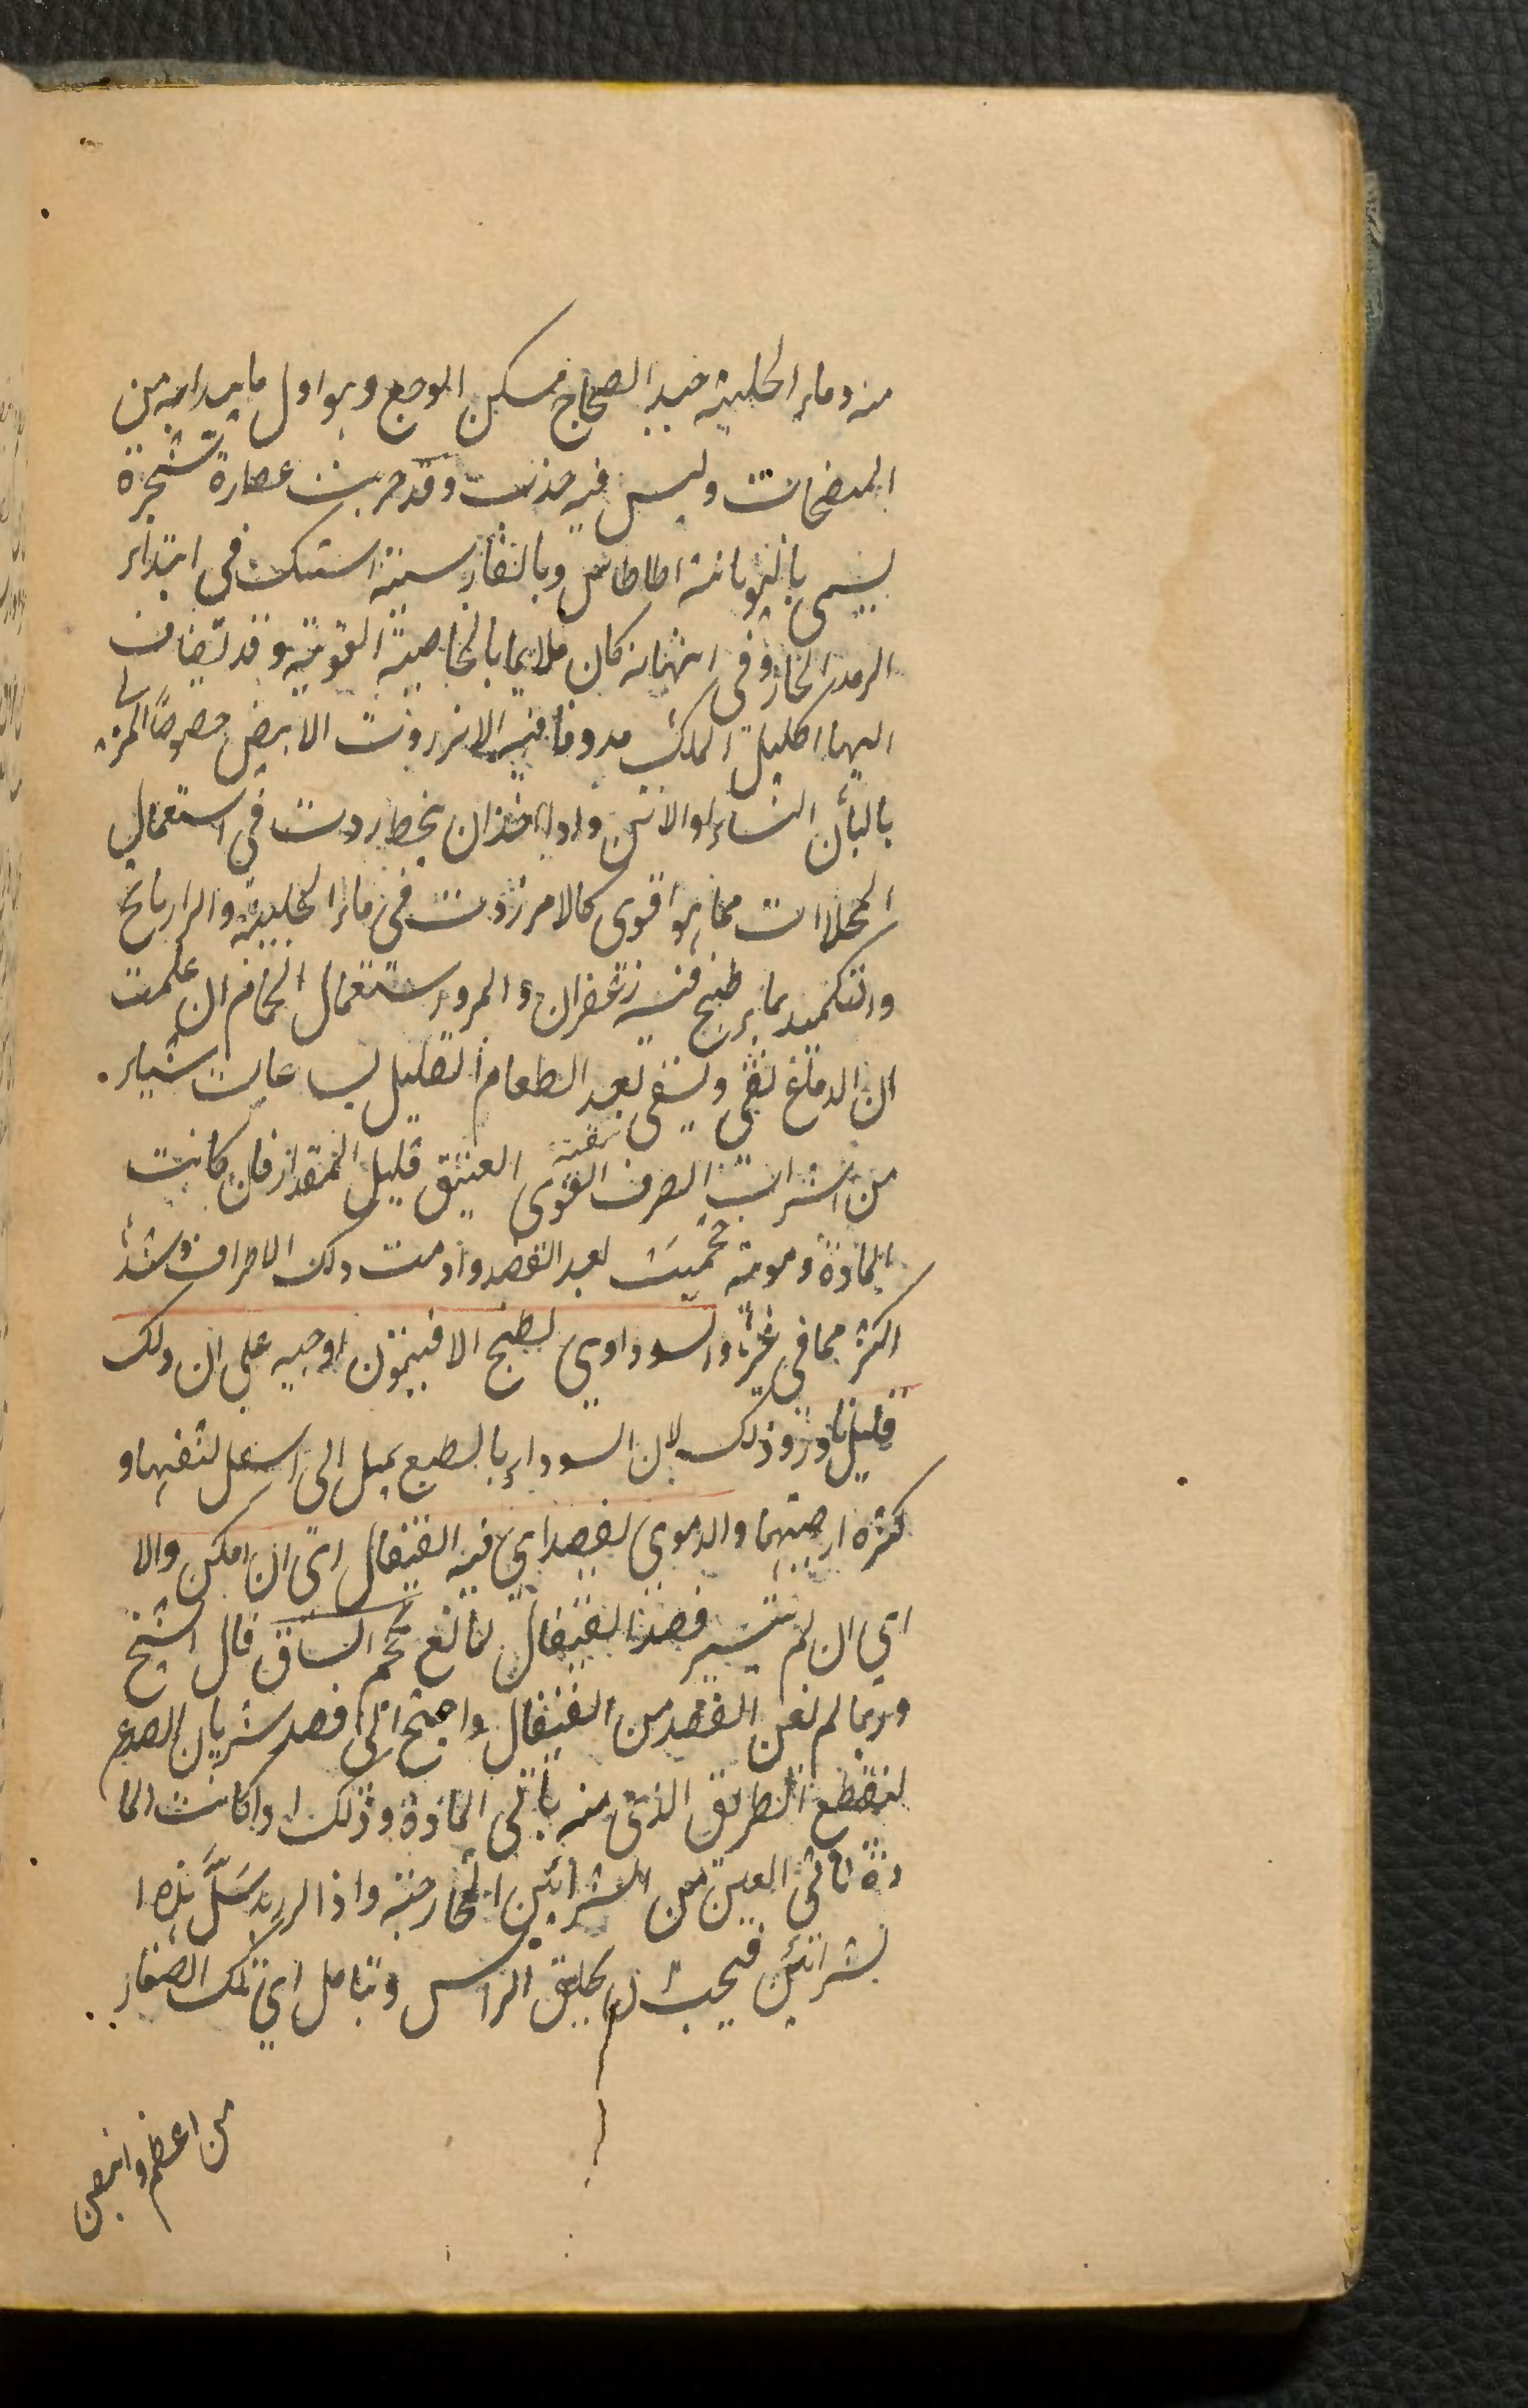 منه وماء الحلبة جيد الضجاج مسكن الوجع وهو اول ما يبدا به من
المنضجات وليس فيه جذب وقد جربت عصارة شجرة
يسمى باليونانية اطاطاس وبالفارسية اشنك فى ابتداء
الرمد الحار وفى انتهائه كان ملايما بالخاصية القوية وقد يضاف
اليها اكليل الملك مدوفا فيه الانزروت الابيض خصوصا المربى
بالبان النساء او الاتن واذا اخذ ان ينحط زدت فى استعمال
المحللات مما هو اقوى كالانزروت فى ماء الحلبة والرازيانج
والتكميد بماء طبخ فيه زعفران والمر واستعمال الحمام ان علمت
ان الدماغ نقى ويسقى بعد الطعام القليل بساعات شياء
من الشراب الصرف القوى العتيق قليل المقدار فان كانت
المادة دموية حجمت بعد الفصد وادمت دلك الاطراف وشدها
اكثر مما فى غيره والسوداوى بطبخ الافتيمون او حبه على ان ذلك
قليل نادر وذلك لان السوداء بالطبع يميل الى اسفل لثقلها و
كثرة ارضيتها والدموى بفصد اي فيه القيفال اي ان امكن والا
اي ان لم يتيسر فصد القيفال لمانع حجم الساق قال الشيخ
وربما لم يغن الفصد من القيفال واحتيج الى فصد شريان الصدغ
لينقطع الطريق الذى منه يأتى المادة وذلك اذا كانت الما
دة تاتى العين من الشرائين الخارجة واذا اريد سل هذه ا
لشرائين فيجب ان يحلق الراس وتتامل اي تلك الصغار
من اعظم وانبض